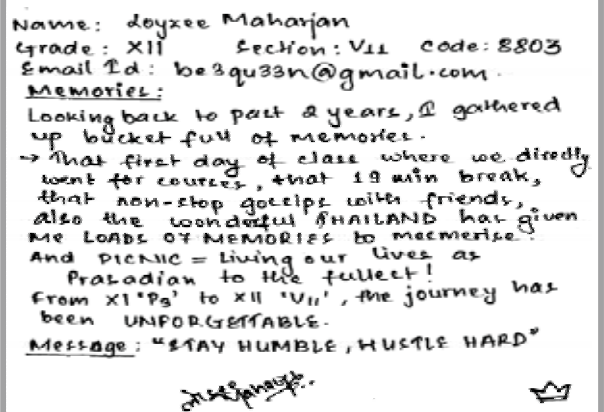 Name: Loyzee Maharjan
Grade: XII Section: V11 Code: 8803
Email Id: be3qu33n@gmail.com.
Memories:
Looking back to past 2 years, I gathered
up bucket full of memories.
→ That first day of class where we directly
went for courses, that 19 min break,
that non-stop gossips with friends,
also the wonderful THAILAND has given
me LOADS OF MEMORIES to mesmerise.
And PICNIC = Living our lives as
Prasadian to the fullest!
From XI 'P3' to XII 'V11', the journey has
been UNFORGETTABLE.
Message: "STAY HUMBLE, HUSTLE HARD"